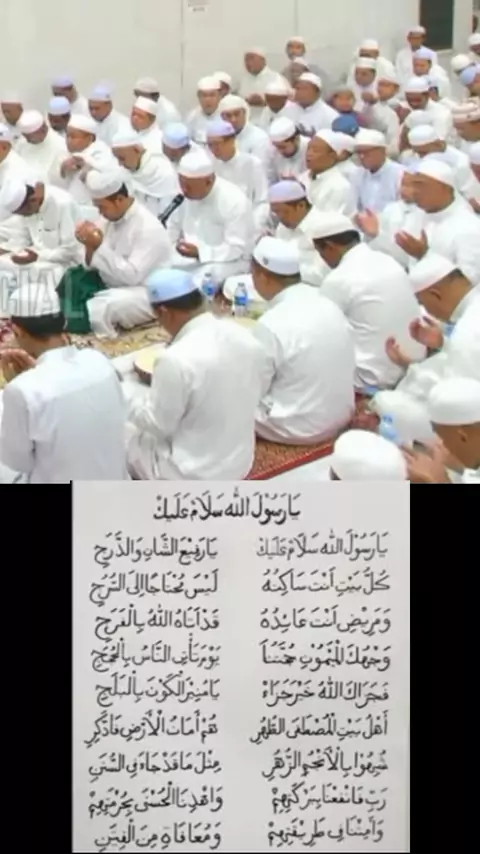 CIAL
يَا رَسُولَ اللّٰه سَلَامْ عَلَيْكْ
يَا رَسُولَ اللّٰه سَلَامْ عَلَيْكْ يَا رَفِيْعَ الشَّانِ وَالدَّرَجِ
كُلُّ بَيْتٍ اَنْتَ سَاكِنُهُ لَيْسَ مُحْتَاجًا اِلَى السُّرُجِ
وَمَرِيْضٍ اَنْتَ عَائِدُهُ قَدْ اَتَاهُ اللّٰهُ بِالْفَرَجِ
وَجْهُكَ الْمَيْمُوْنُ حُجَّتُنَا يَوْمَ تَأْتِى النَّاسُ بِالْحُجَجِ
فَجَزَاكَ اللّٰهُ خَيْرَ جَزَاءْ يَا مُنِيْرَ الْكَوْنِ بِالْبَلَجِ
اَهْلُ بَيْتِ الْمُصْطَفَى الطُّهُرِ هُمْ اَمَانُ الْاَرْضِ فَادَّكِرِ
شُبِّهُوْا بِالْاَنْجُمِ الزُّهُرِ مِثْلَ مَا قَدْ جَاءَ فِى السُّنَنِ
رَبِّ فَانْفَعْنَا بِبَرْكَتِهِمْ وَاهْدِنَا الْحُسْنَى بِحُرْمَتِهِمْ
وَاَمِتْنَا فِى طَرِيْقَتِهِمْ وَمُعَافَاةٍ مِنَ الْفِتَنِ